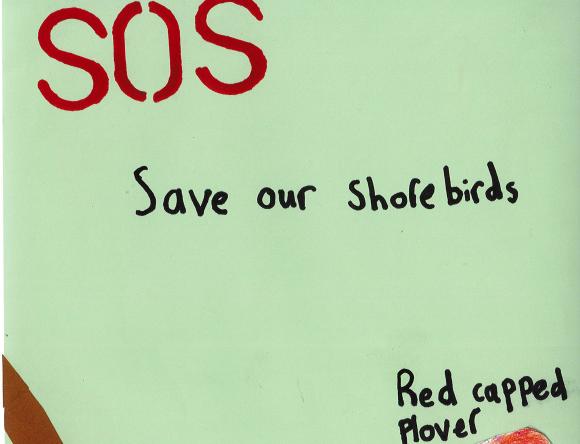 SOS
Save our shorebirds
Red capped
plover